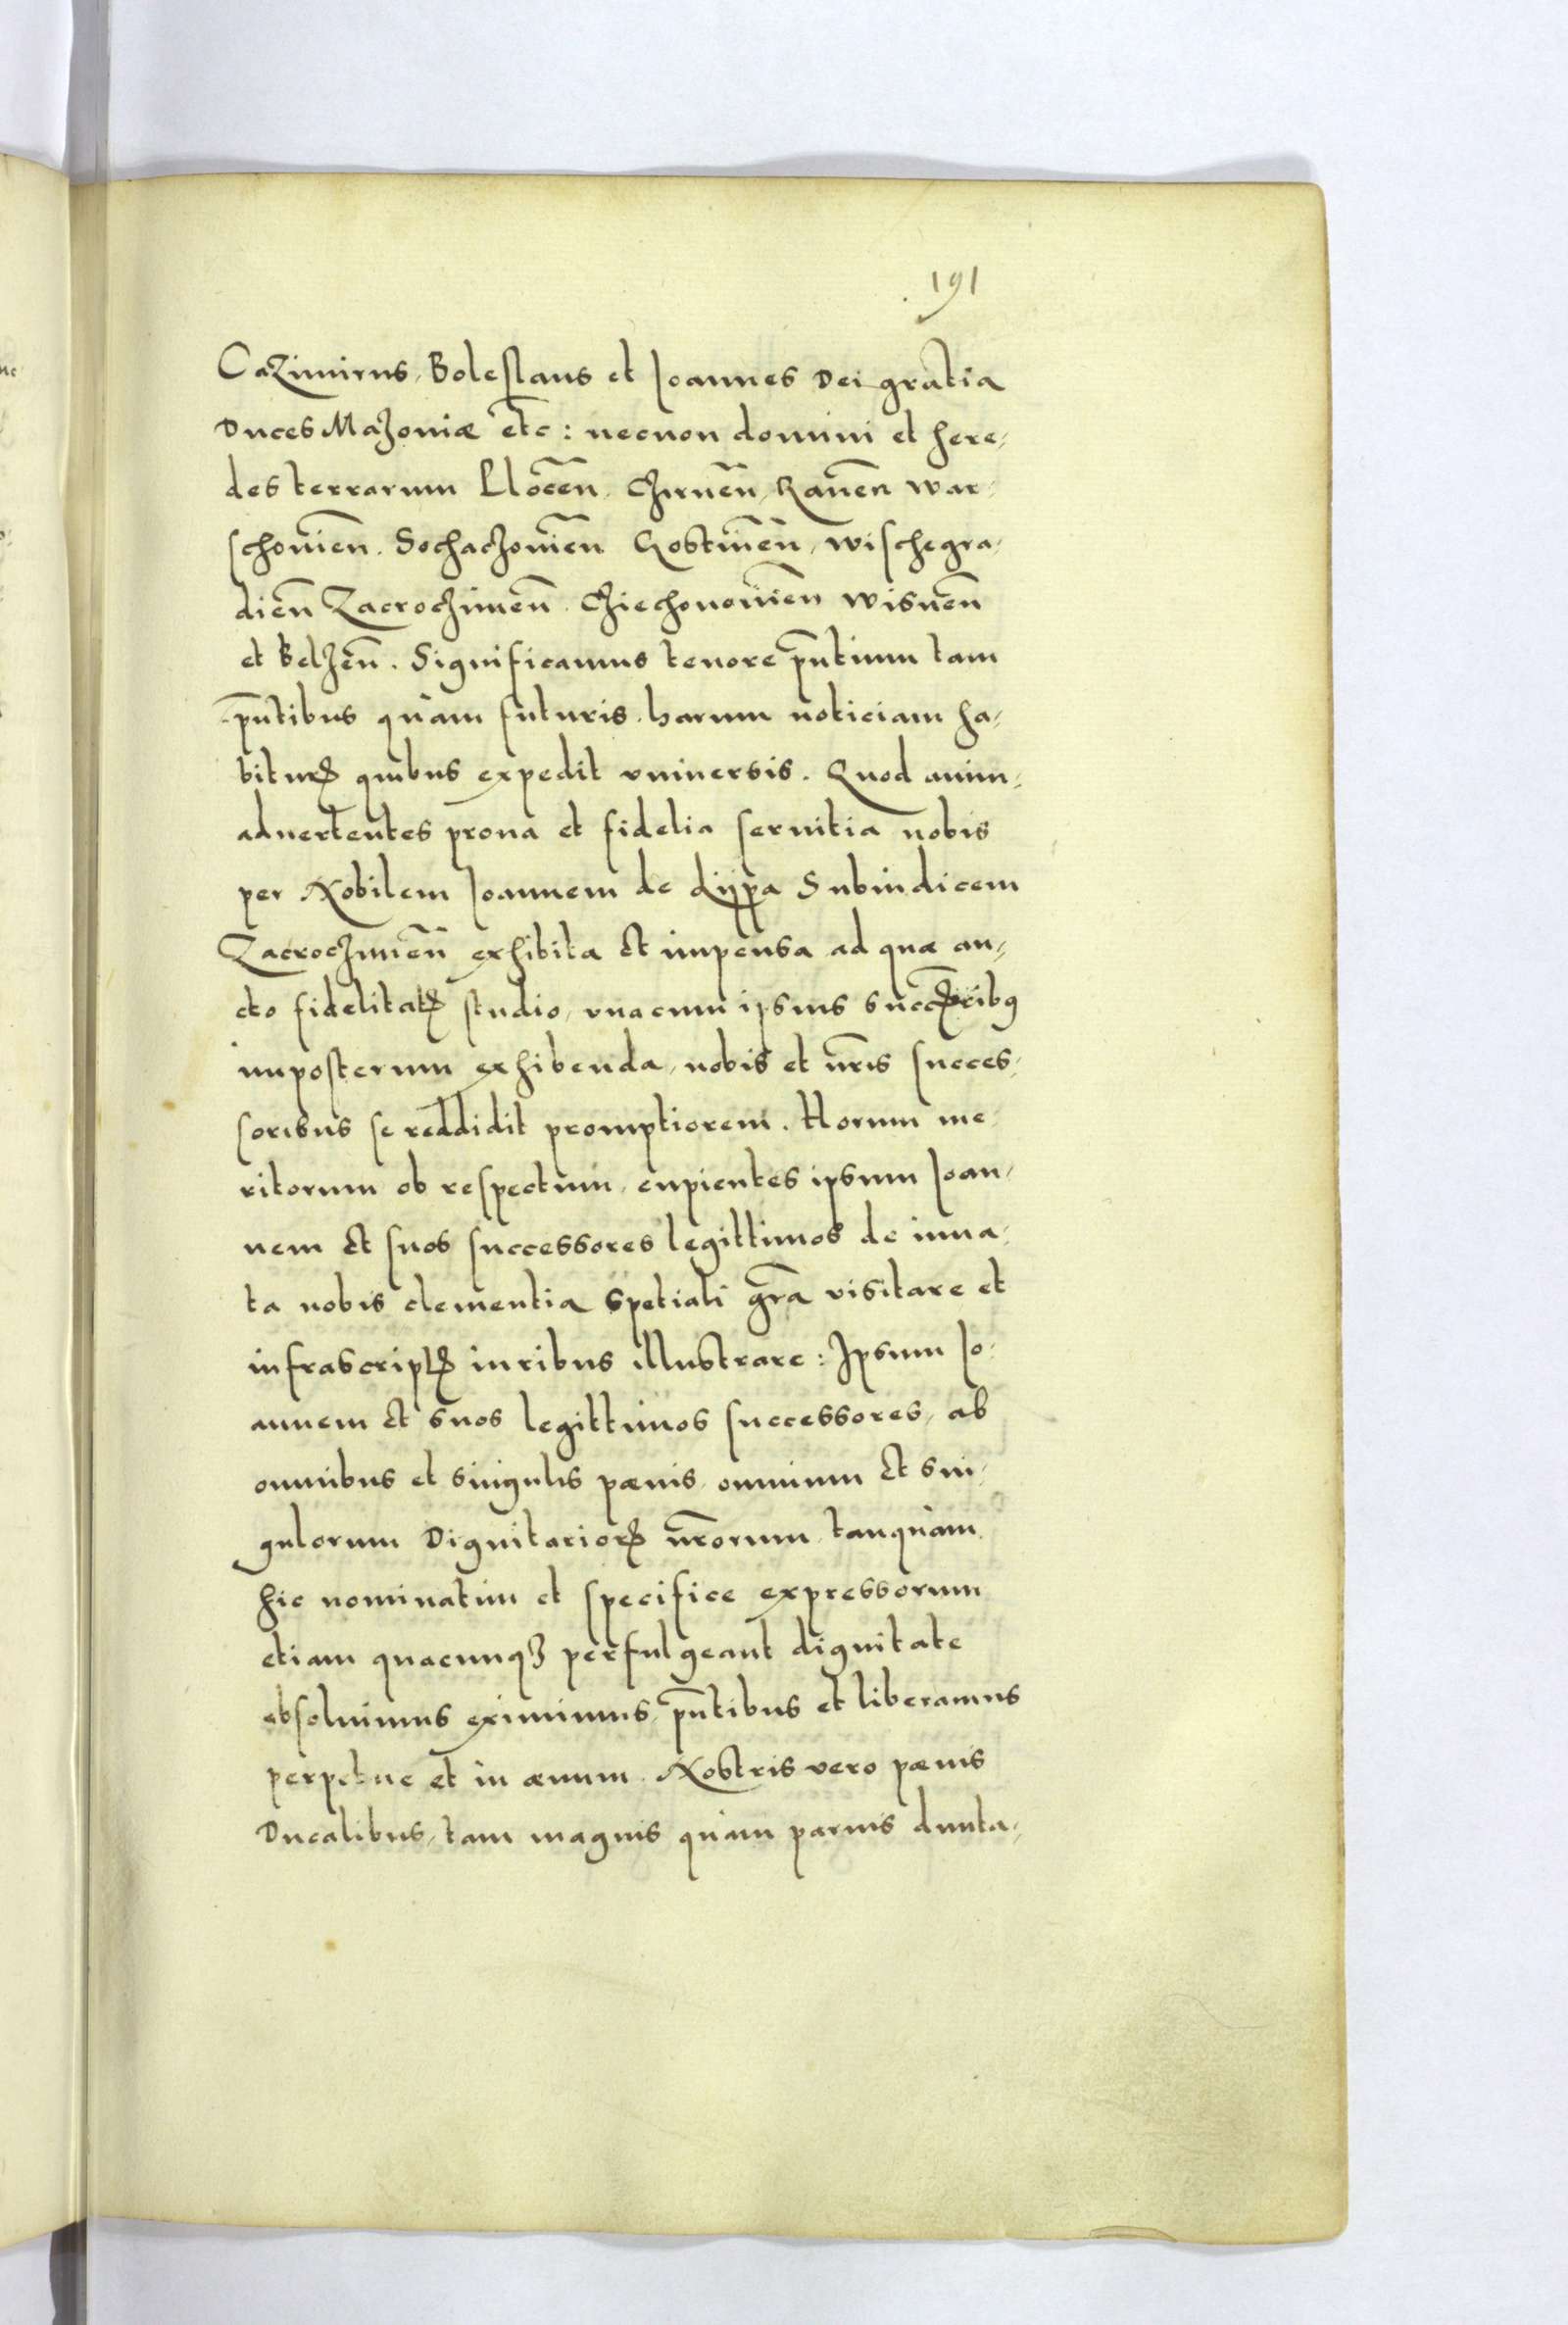 191
Cazimirus, Boleslaus et Joannes Dei gratia
Duces Mazoviæ etc: necnon domini et here,
des terrarum Plocēn, Czirnēn, Ravēn War,
schoviēn. Sochaczoviēn Gostinēn, Wischegra,
diēn Zacrocziṁēn. Cziechonoviēn Wisnēn
et Belzēn. Significamus tenore pn̄tium tam
pn̄tibus quàm futuris. harum noticiam ha,
bituꝝ quibus expedit vniversis. Quod anim,
advertentes prona et fidelia servitia nobis
per Nobilem Joannem de Lyppa Subiudicem
Zacrocziṁēn exhibita et impensa ad quæ au,
cto fidelitatꝭ studio, vnacum ipsius succꝰoribꝰ
imposterum exhibenda, nobis et nr̄is succes,
soribus se reddidit promptiorem. Horum me,
ritorum ob respectum, cupientes ipsum Joan,
nem et suos successores legittimos de inna,
ta nobis clementia spetiali gr̄a visitare et
infrascriptꝭ iuribus illustrare: Ipsum Jo,
annem et suos legittimos successores, ab
omnibus et singulis pænis, omnium et sin,
gulorum Dignitarioꝝ nr̄orum, tanquàm
hic nominatim et specifice expressorum
etiam quacunqꝫ perfulgeant dignitate
absoluimus eximimus, pn̄tibus et liberamus
perpetue et in ævum. Nostris vero pænis
Ducalibus, tam magnis quàm parvis dunta,